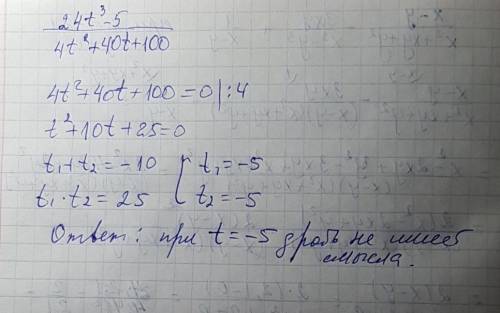 24t³-5
4t²+40t+100
4t²+40t+100=0|:4
t²+10t+25=0
t₁+t₂=-10 t₁=-5
t₁·t₂=25 t₂=-5
Ответ: при t=-5 дробь не имеет
смысла.